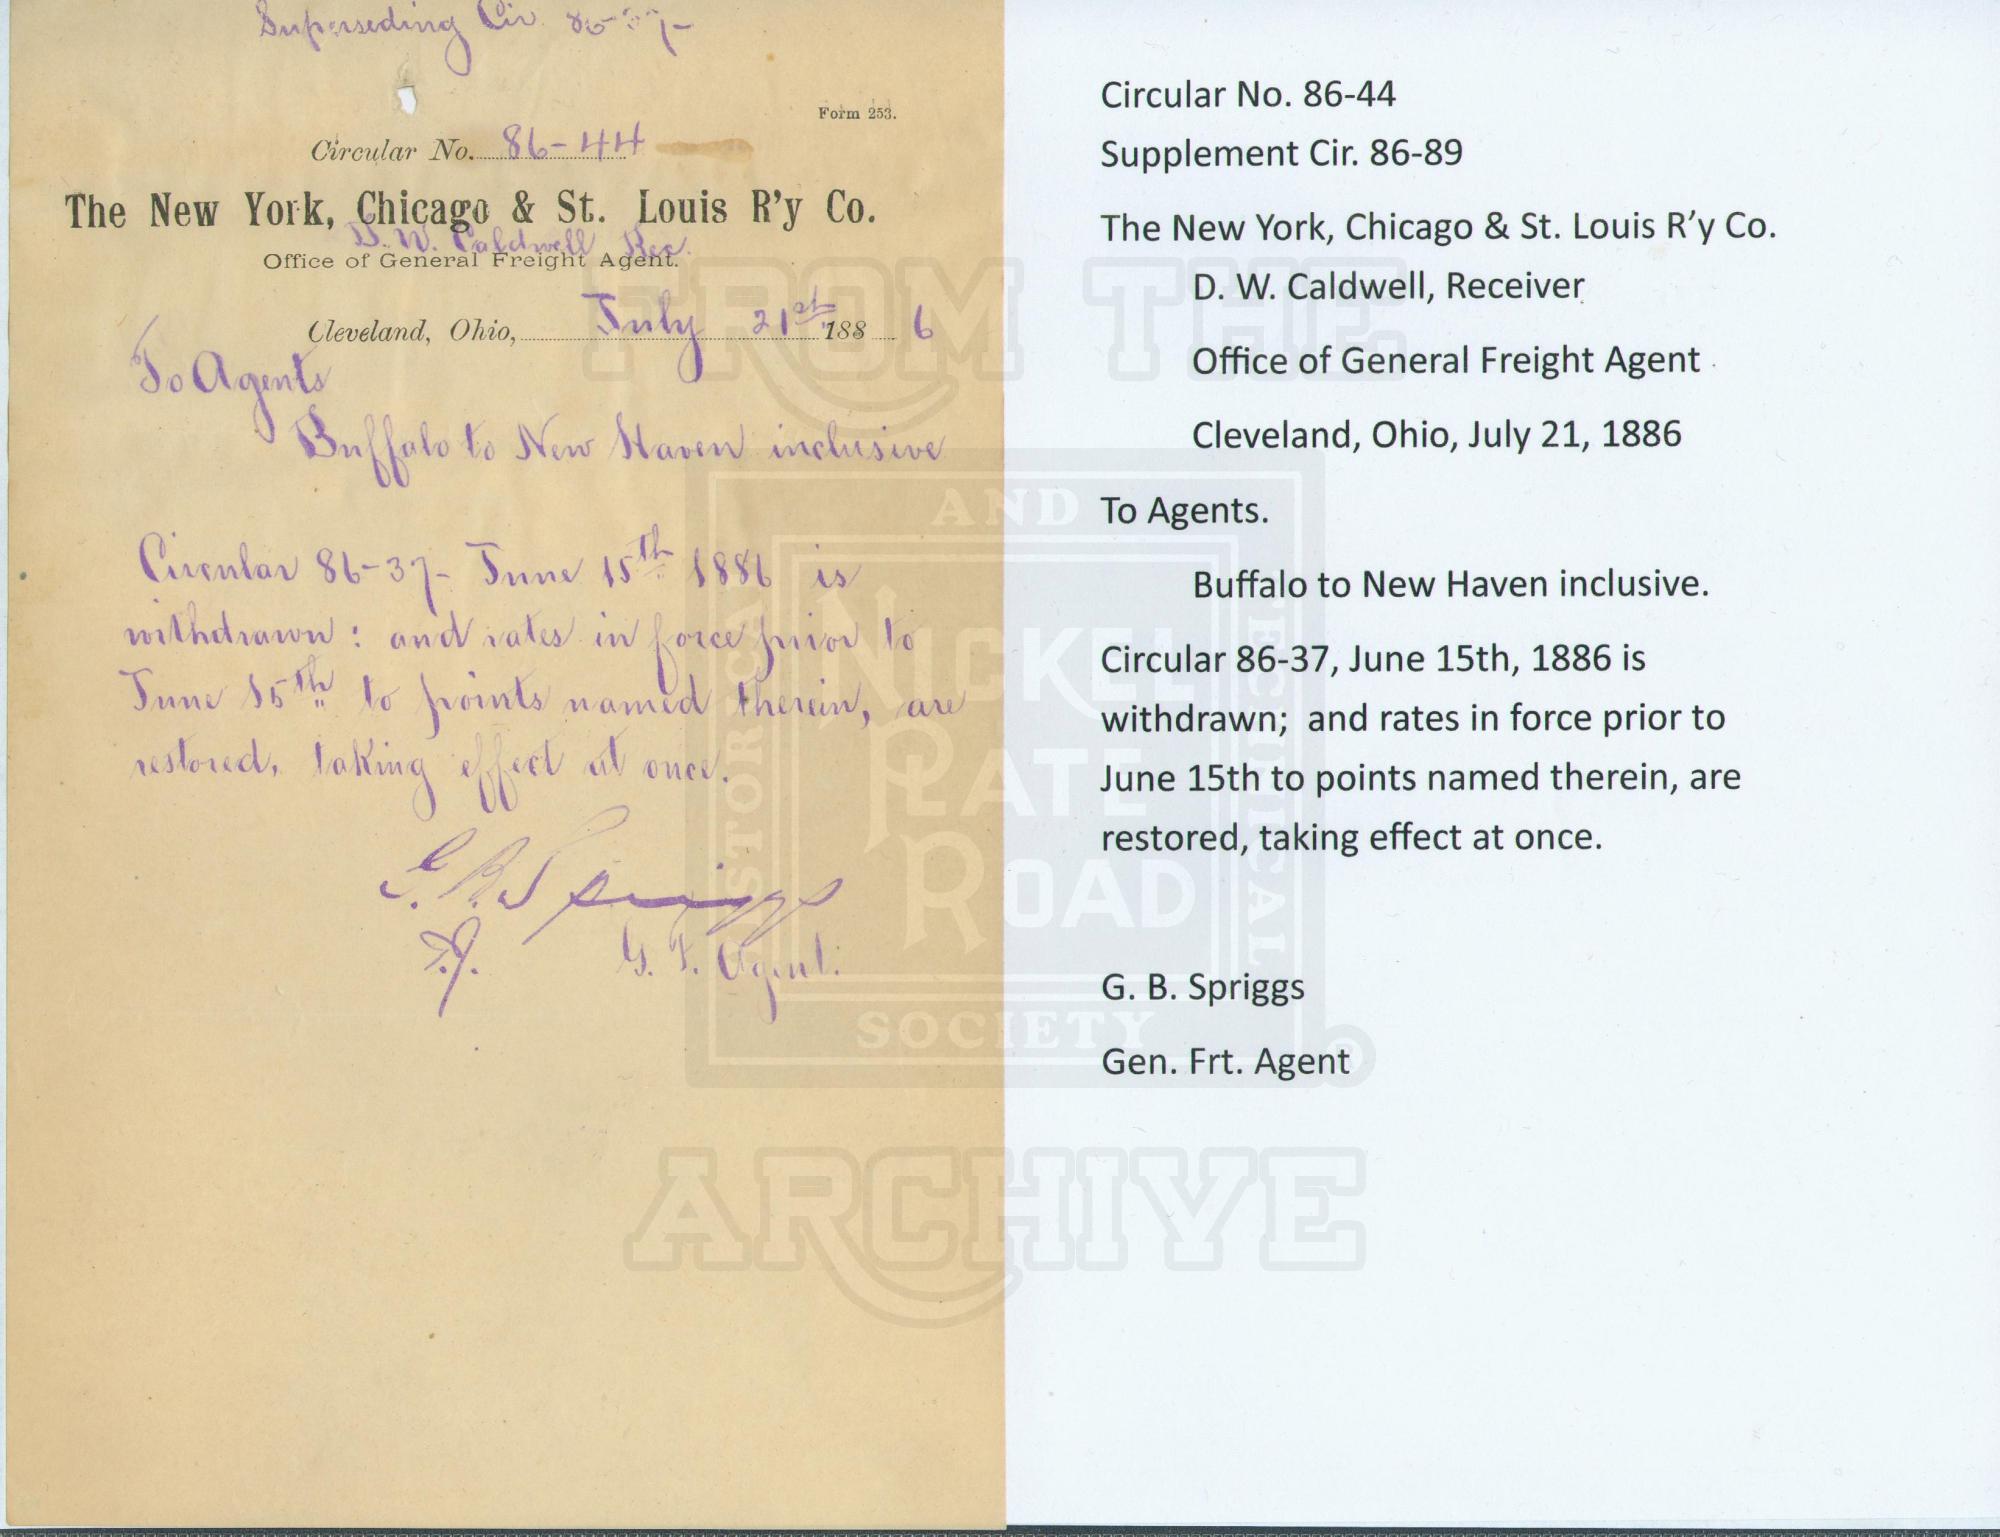 Superseding Cir. 86-37-
Form 253.
Circular No. 86-44
The New York, Chicago & St. Louis R'y Co.
D. W. Caldwell Rec.
Office of General Freight Agent.
Cleveland, Ohio, July 21st 1886
To Agents
Buffalo to New Haven inclusive
Circular 86-37- June 15th 1886 is
withdrawn: and rates in force prior to
June 15th to points named therein, are
restored, taking effect at once.
G. B. Spriggs
G. F. Agent.
Circular No. 86-44
Supplement Cir. 86-89
The New York, Chicago & St. Louis R'y Co.
D. W. Caldwell, Receiver
Office of General Freight Agent
Cleveland, Ohio, July 21, 1886
To Agents.
Buffalo to New Haven inclusive.
Circular 86-37, June 15th, 1886 is
withdrawn; and rates in force prior to
June 15th to points named therein, are
restored, taking effect at once.
G. B. Spriggs
Gen. Frt. Agent
FROM THE
HISTORICAL
AND
TECHNICAL
NICKEL
PLATE
ROAD
SOCIETY
®
ARCHIVE